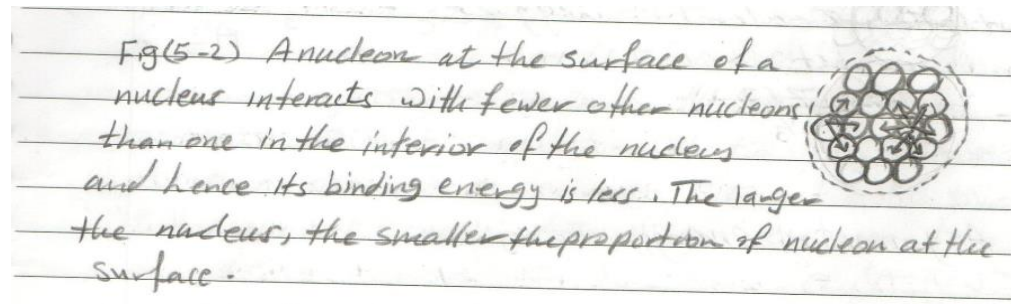 Fig(5-2) A nucleon at the surface of a
nucleus interacts with fewer other nucleons
than one in the interior of the nucleus
and hence its binding energy is less. The larger
the nucleus, the smaller the proportion of nucleon at the
surface.